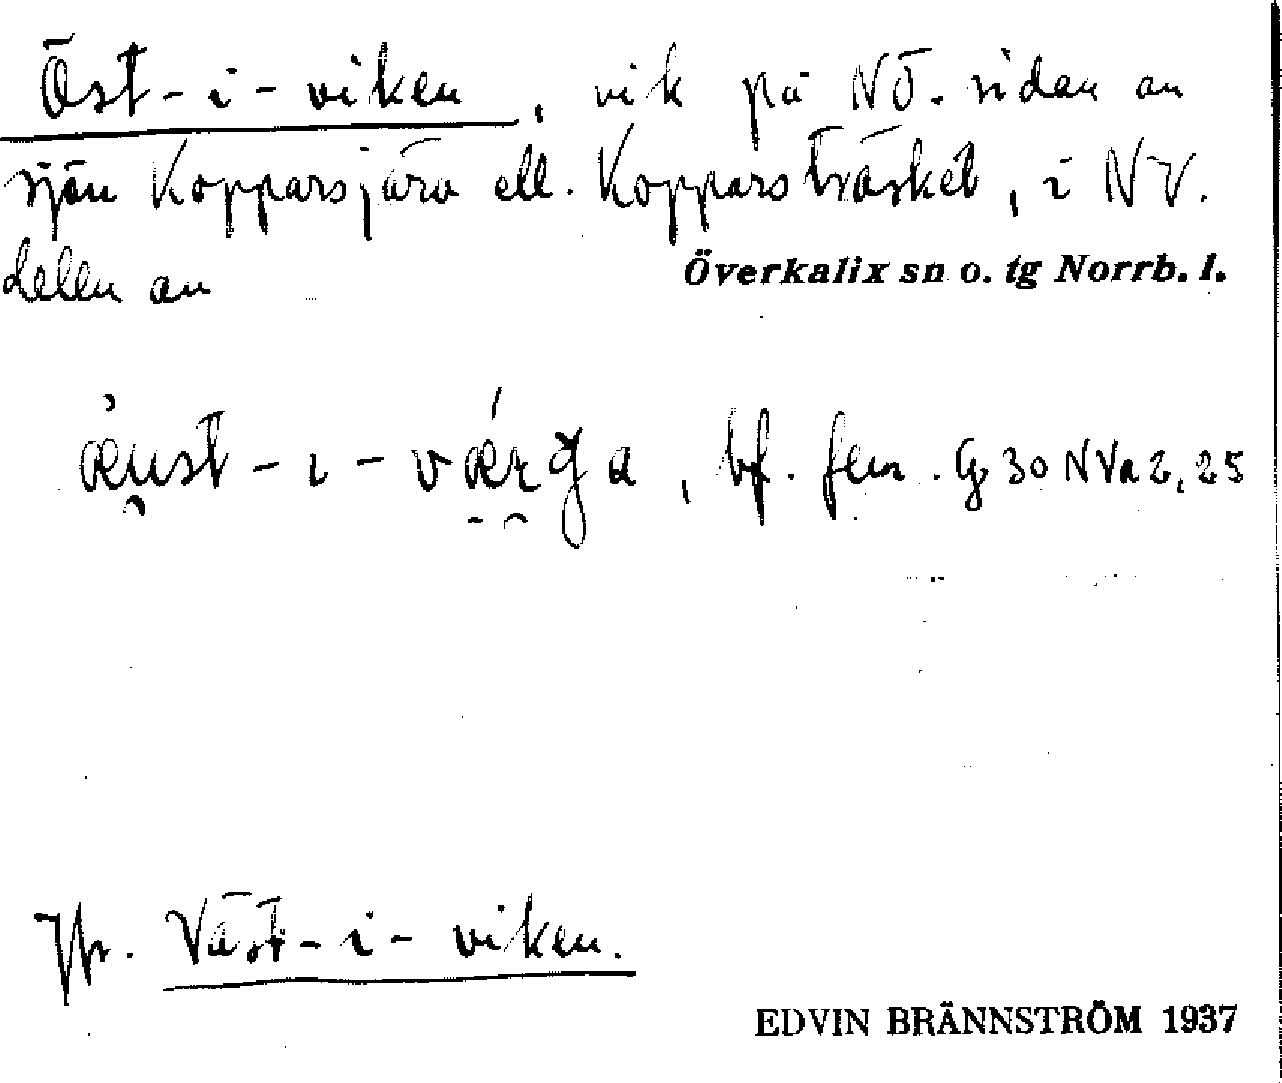 Öst-i-viken, vik på NÖ. sidan av
sjön Kopparsjärv ell. Kopparsträsket, i NV.
delen av Överkalix sn o. tg Norrb. l.
æust-ı-værga, bf. fem. G 30 NVa 2,25
Jfr. Väst-i-viken.
EDVIN BRÄNNSTRÖM 1937